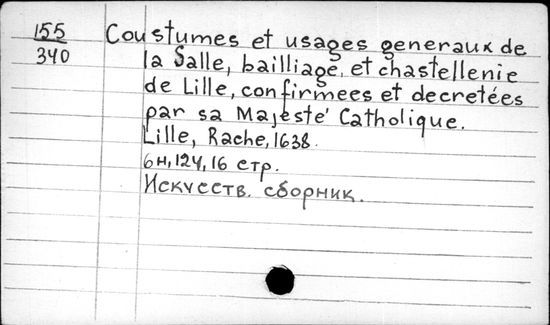 155 Coustumes et usages generaux de
340 la Salle, bailliage, et chastellenie
de Lille, confirmees et decretées
par sa Majesté Catholique.
Lille, Rache, 1638.
6н, 124, 16 стр.
Искусств. сборник.